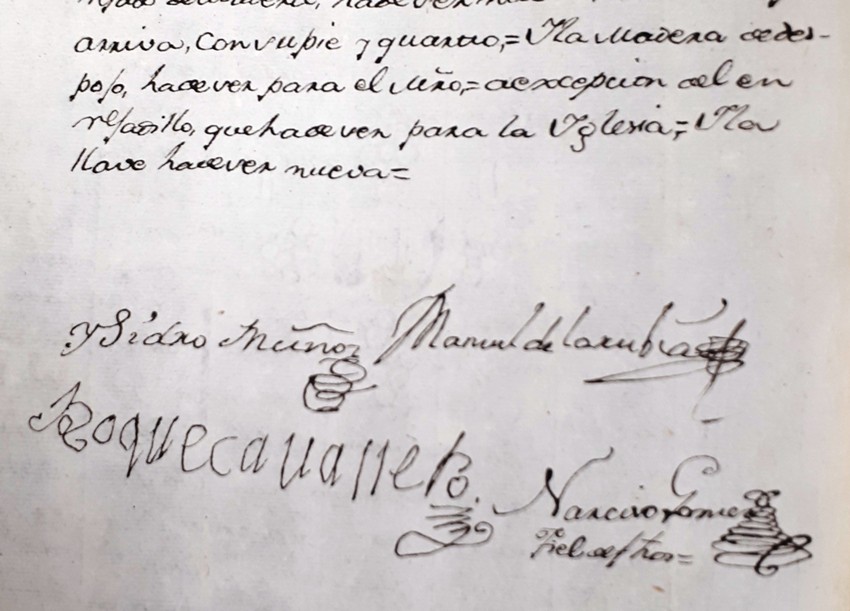 arriva, con su pie y quarto,= Yla Madera de des-
pojo, ha de ser para el Mro,= a excepcion del en
que ha de ser para la Yglesia,= Yla
llave ha de ser nueva=
Ysidro Muñoz Manuel de la rubia
Roque cavallero.
Narciso Gomez
Fiel de fhos=